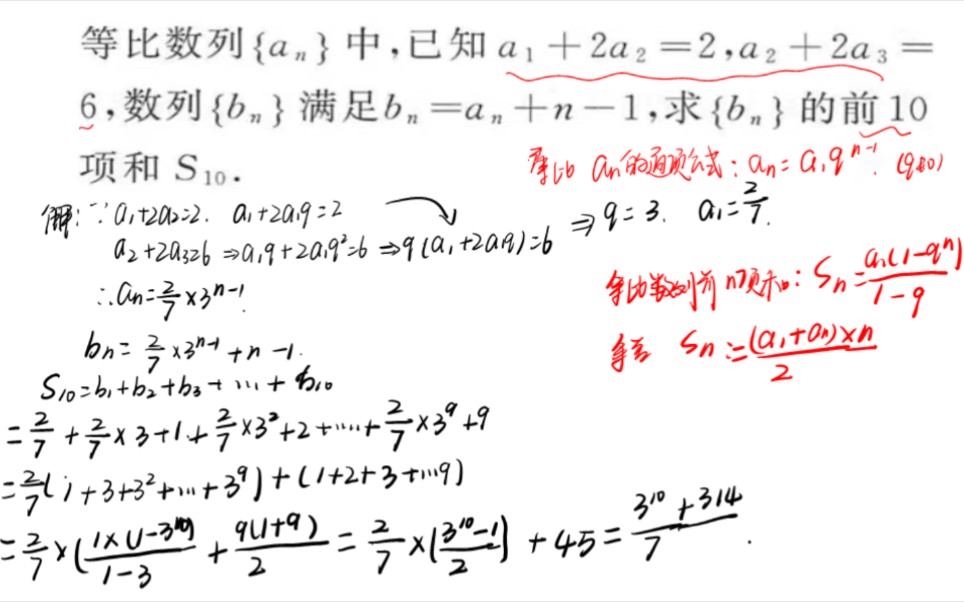 等比数列{aₙ}中,已知a₁+2a₂=2,a₂+2a₃=
6,数列{bₙ}满足bₙ=aₙ+n-1,求{bₙ}的前10
项和S₁₀.
等比 aₙ的通项公式: aₙ=a₁qⁿ⁻¹. (q≠0)
解:∵a₁+2a₂=2. a₁+2a₁q=2
a₂+2a₃=6 ⇒a₁q+2a₁q²=6 ⇒q(a₁+2a₁q)=6 ⇒ q=3. a₁=2/7.
∴aₙ=2/7×3ⁿ⁻¹.
等比数列前n项和: Sₙ=a₁(1-qⁿ)/1-q
bₙ=2/7×3ⁿ⁻¹+n-1.
等差 Sₙ=(a₁+aₙ)×n/2
S₁₀=b₁+b₂+b₃+…+b₁₀
=2/7+2/7×3+1+2/7×3²+2+……+2/7×3⁹+9
=2/7(1+3+3²+…+3⁹)+(1+2+3+…9)
=2/7×(1×(1-3¹⁰)/1-3+9(1+9)/2=2/7×(3¹⁰-1/2)+45=3¹⁰+314/7.